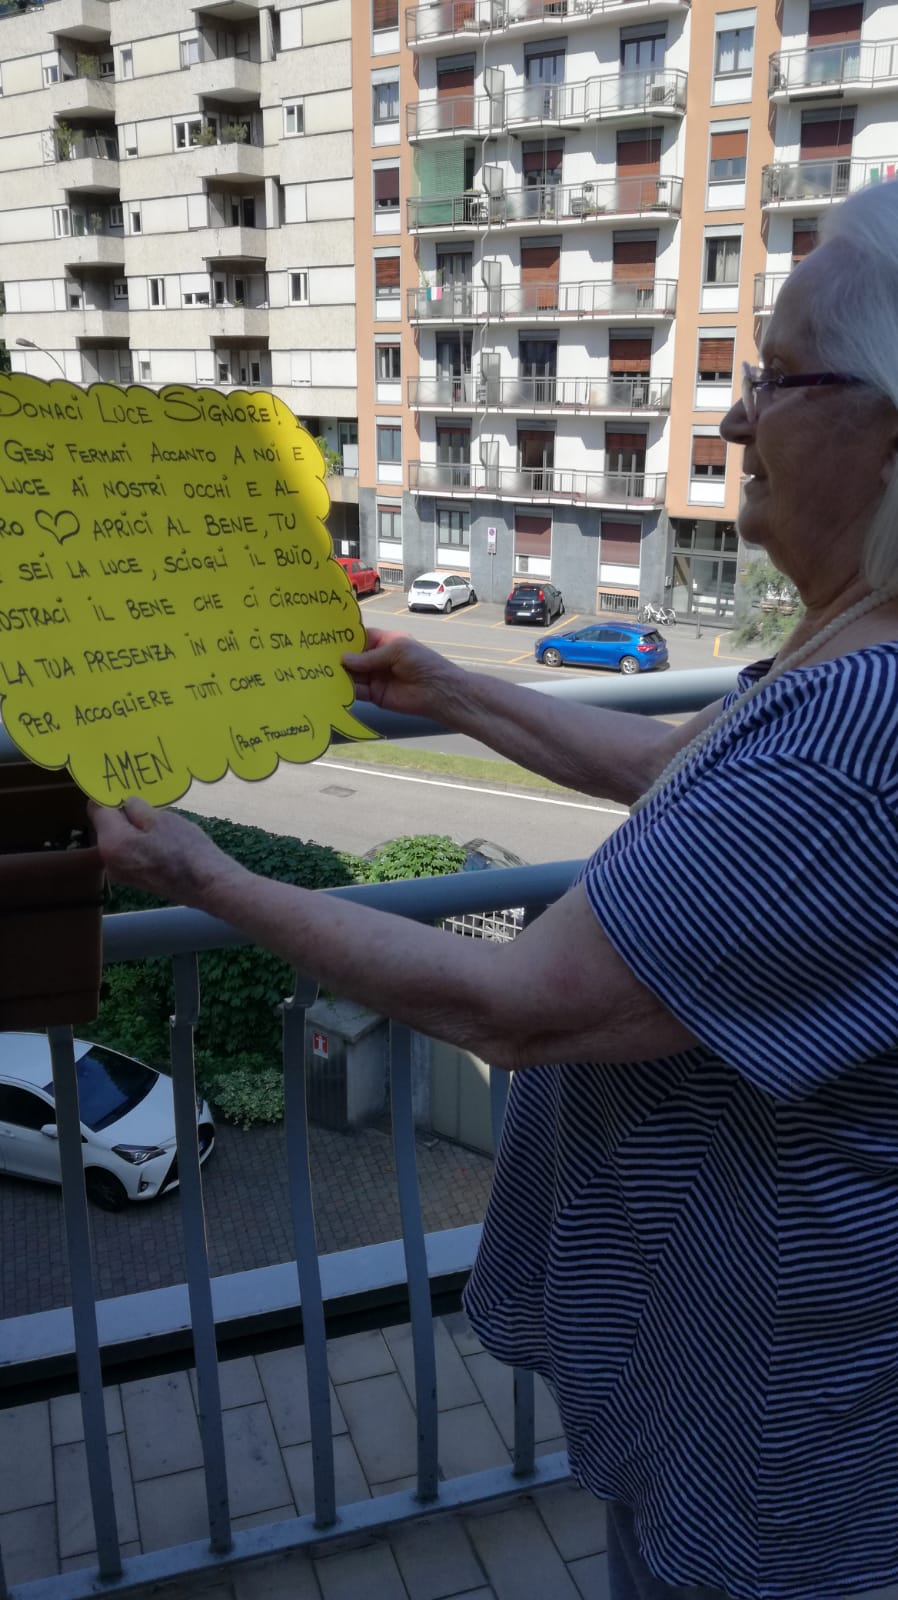 DONACI LUCE SIGNORE!
GESÙ FERMATI ACCANTO A NOI E
LUCE AI NOSTRI OCCHI E AL
RO ♡ APRICI AL BENE, TU
SEI LA LUCE, SCIOGLI IL BUIO,
OSTRACI IL BENE CHE CI CIRCONDA,
LA TUA PRESENZA IN CHI CI STA ACCANTO
PER ACCOGLIERE TUTTI COME UN DONO
(Papa Francesco)
AMEN